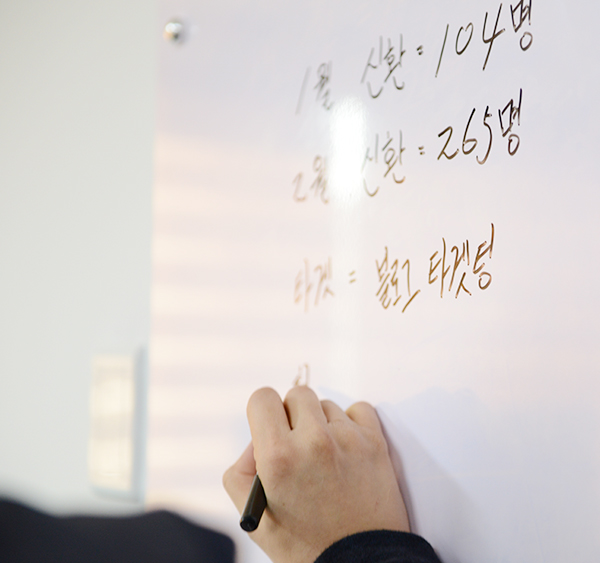 1월 신환 = 104명
2월 신환 = 265명
타겟 = 블로그 타겟팅